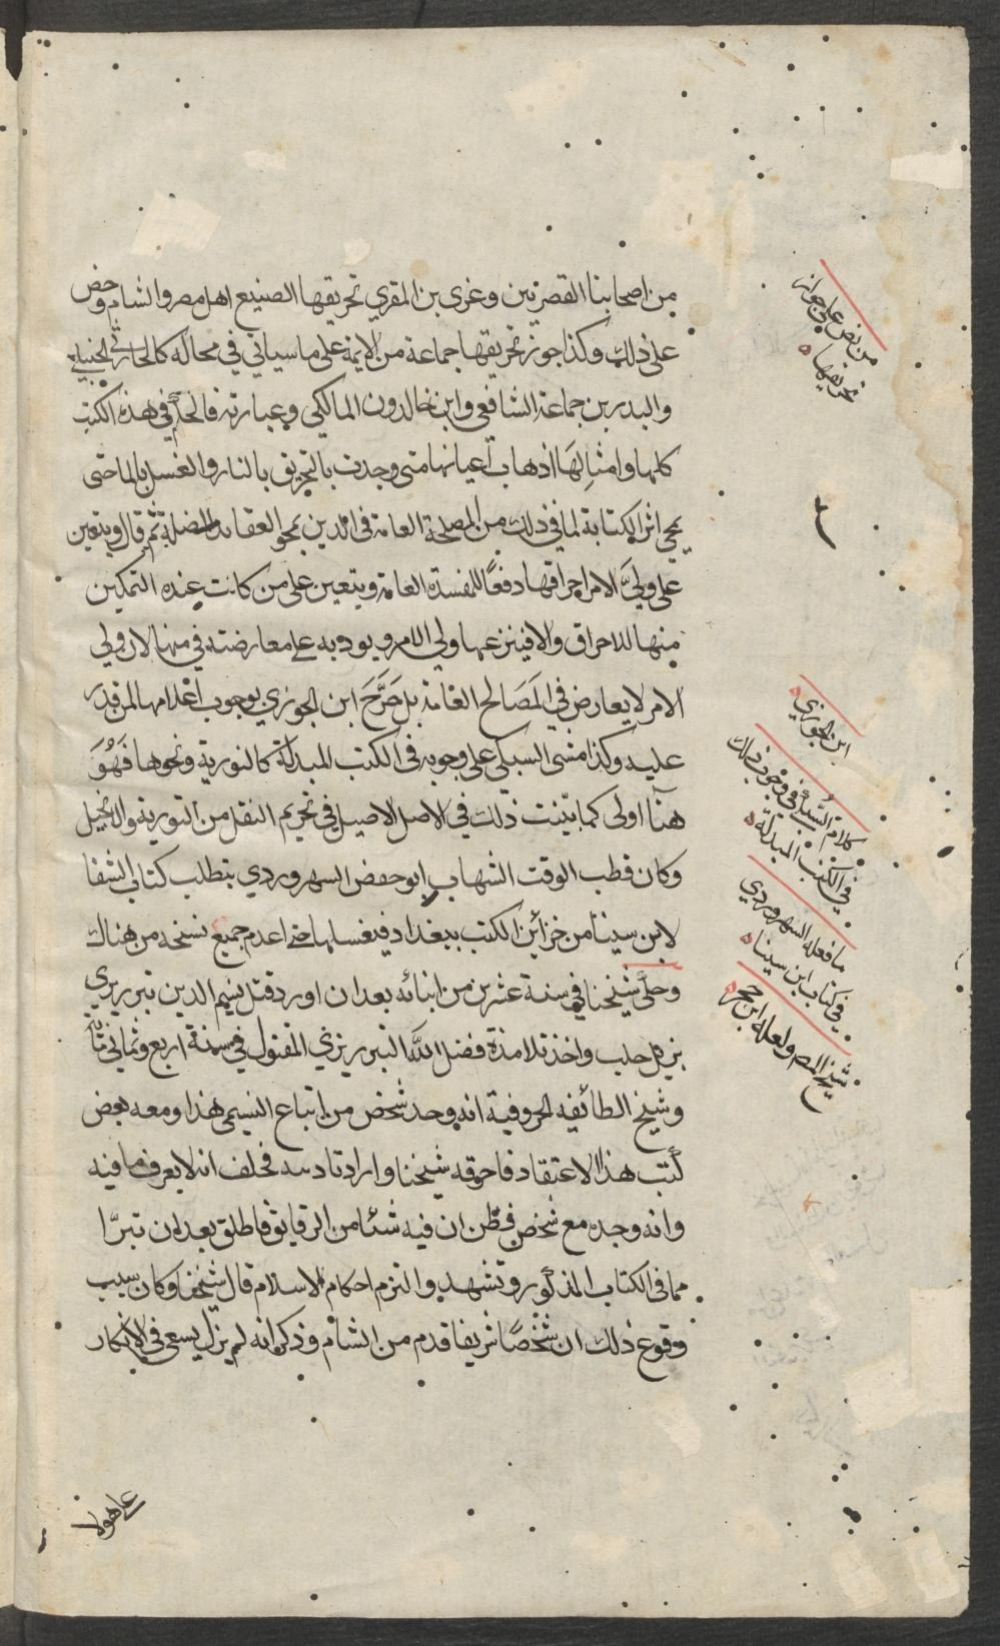 من اصحابنا القصرتين وغزى بن المقري تحريقها الصنيع اهل مصر والشام وحض
على ذلك وكذا جوز تحريقها جماعة من الايمة على ما سياتي في محاله كالحارثي الحنبلي
والبدر بن جماعة الشافعي وابن خالدون المالكي وعبارته فالحكم في هذه الكتب
كلها وامثالها اذهاب اعيانها متى وجدت بالتحريق بالنار والغسل بالماحتى
يمحى اثر الكتابة لما في ذلك من المصلحة العامة في الدين بمحو العقائد المضلة ثم قال ويتعين
على ولي الامر احراقها دفعًا للمفسدة العامة ويتعين على من كانت عنده التمكين
منها للاحراق والا فينزعها ولي الامر ويودبه على معارضته في منها لان ولي
الامر لا يعارض في المَصَالح العامة بل صَرَّحَ ابن الجوزي بوجوب اعدامها لمن قدر
عليه وكذا مشى السبكي على وجوبه في الكتب المبدلة كالتورية ونحوها فَهُوَ
هنا اولى كما بيّنت ذلك في الاصل الاصيل في تحريم النقل من التورية والانجيل
وكان قطب الوقت الشهاب ابو حفص السهروردي يتطلب كتاب الشفا
لابن سينا من خزائن الكتب ببغداد فيغسلها حتى اعدم جميع نسخه من هناك
وحكى شيخنا في سنة عشرين من انبائه بعد ان اورد قتل نسيم الدين تبريزي
نزيل حلب واخذ تلامذة فضل الله التبريزي المقتول في سنة اربع وثماني مائة
وشيخ الطائفه الحروفية انه وجد شخص من اتباع النسيمي هذا ومعه بعض
كُتب هذا الاعتقاد فاحرقه شيخنا واراد تاديبه فحلف انه لا يعرف ما فيه
وانه وجده مع شخص فظن ان فيه شئا من الرقايق فاطلق بعد ان تبرّا
مما في الكتاب المذكور وتشهد والتزم احكام الاسلام قال شيخنا وكان سبب
وقوع ذلك ان شخصًا شريفا قدم من الشام وذكر انه لم يزل يسعى في الانكار
على هولا
من نص على جواز
تحريقها
ابن الجوزي
كلام السبكي في وجوب ذلك
في الكتب المبدلة
ما فعله السهروردي
في كتاب ابن سينا
شيخ المص ولعله ابن حجر